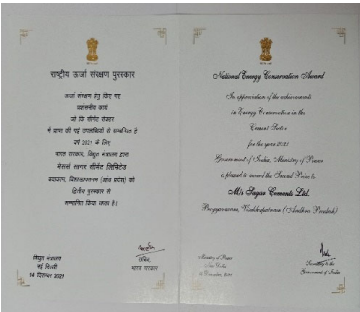 राष्ट्रीय ऊर्जा संरक्षण पुरस्कार
ऊर्जा संरक्षण हेतु किए गए
प्रशंसनीय कार्य
जो कि सीमेंट सेक्टर
में प्राप्त की गई उपलब्धियों से सम्बन्धित है
वर्ष 2021 के लिए
भारत सरकार, विद्युत मंत्रालय द्वारा
मेसर्स सागर सीमेंट लिमिटेड
को
द्वितीय पुरस्कार से
सम्मानित किया जाता है।
विद्युत मंत्रालय
नई दिल्ली
14 दिसम्बर 2021
सचिव
भारत सरकार
National Energy Conservation Award
In appreciation of the achievements
in Energy Conservation in the
Cement Sector
for the year 2021
Government of India, Ministry of Power
is pleased to award the Second Prize to
M/s Sagar Cements Ltd.
Bayyavaram, Visakhapatnam (Andhra Pradesh)
Ministry of Power
New Delhi
14 December 2021
Secretary to the
Government of India